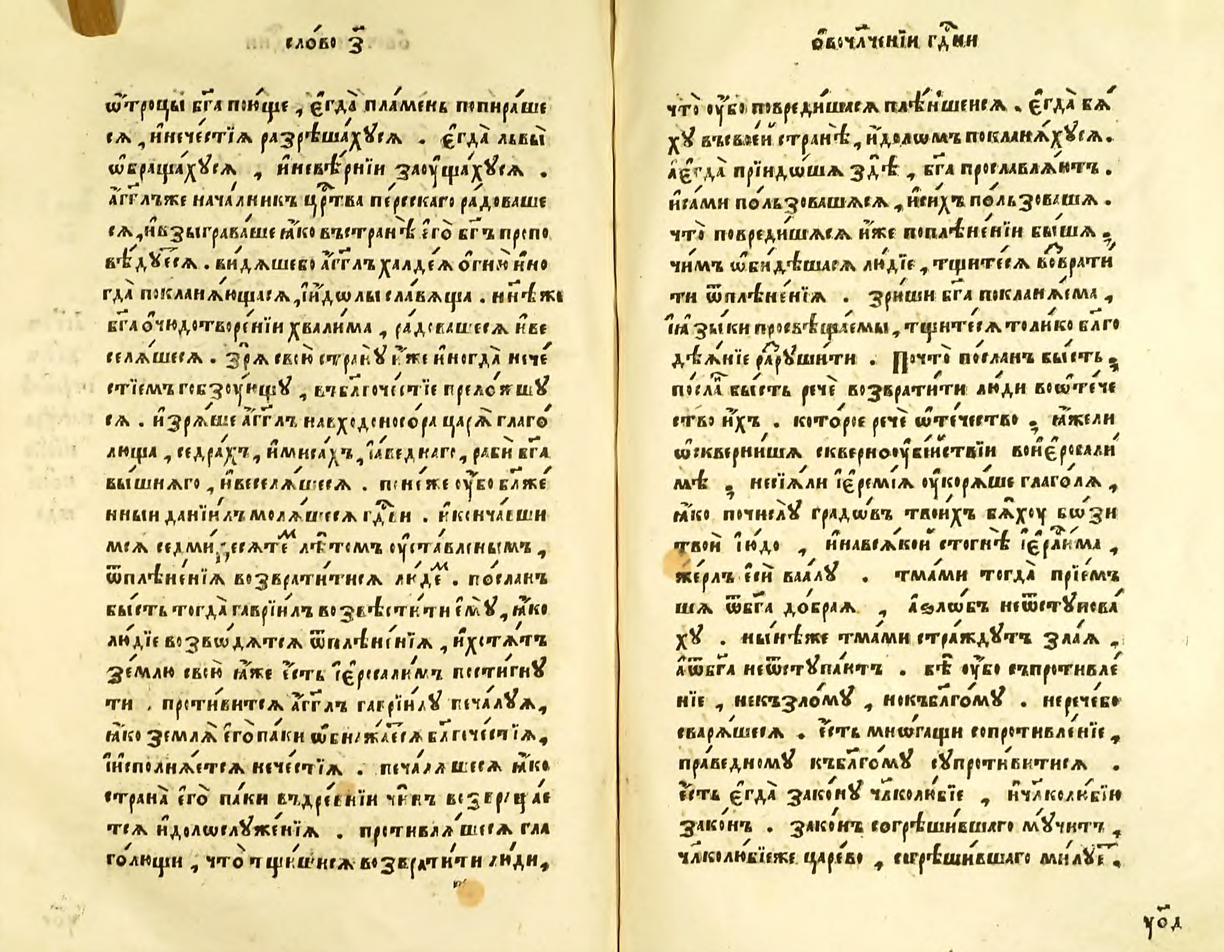 сло́во з҃
ѿтроцы бг҃а пою́ще , є҆гда̀ пла́мень попира́ше
сѧ , и҆нече́стїѧ разрѣша́хꙋсѧ . є҆гда̀ льви̇̀
ѡ҆браща́хꙋсѧ , и҆невѣ́рнїи заꙋ҆ща́хꙋсѧ .
а҆́гг҃лъже нача́лникъ црⷭ҇тва пе́рскаго ра́доваше
сѧ , и҆взыгра́ваше ꙗ҆́ко въстранѣ̀ є҆го̀ бг҃ъ пропо
вѣ́дꙋесѧ . ви́дѧшебо а҆́гг҃лъ халде́ѧ ѻ҆гню̀ и҆но
гда̀ покланѧ́ющасѧ , и҆і҆́дѡлы сла́вѧща . нн҃ѣже
бг҃а ѡ҆чюдотворе́нїи хвали́ма , ра́довашесѧ и҆ве
селѧ́шесѧ . зрѧ̀ свою̀ странꙋ̀ и҆́же и҆ногда̀ нече́
стїемъ гобзꙋ́ющꙋ , въбл҃гоче́стїе прело́жшꙋ
сѧ . и҆зрѧ́ше а҆́гг҃лъ навходоносо́ра царѧ̀ глаго́
люща , седра́хъ , и҆миса́хъ , і҆аведна́го , раби̇̀ бг҃а
вы́шнѧго , и҆веселѧ́шесѧ . пс҃не́же ᲂу҆́бо бл҃же́
нныи данїи́лъ молѧ́шесѧ гдⷭ҇ви . и҆сконча́вши
мсѧ седми́десѧтеⷨ лѣ́томъ ᲂу҆ста́вленымъ ,
ѿплѣне́нїѧ возврати́тисѧ лю́деⷨ . по́сланъ
бы́сть тогда̀ гаврїи́лъ возвѣсти́ти є҆мꙋ̀ , ꙗ҆́ко
лю́дїе возво́дѧтсѧ ѿплѣне́нїѧ , и҆хотѧ́тъ
зе́млю свою̀ ꙗ҆́же є҆́сть і҆єрⷭ҇али́мъ пости́гнꙋ
ти . проти́витсѧ а҆́гг҃лъ гаврїи́лꙋ печа́лꙋѧ ,
ꙗ҆́ко землѧ̀ є҆го̀ па́ки ѡ҆бнажа́есѧ бл҃гоче́стїѧ ,
и҆и҆сполнѧ́етсѧ нече́стїѧ . печа́лѧшесѧ ꙗ҆́ко
страна̀ є҆го̀ па́ки въдре́внїи чи́нъ возвраща́е
тсѧ и҆долослꙋже́нїѧ . противлѧ́шесѧ гла
го́лющи , что̀ тщи́шисѧ возврати́ти лю́ди ,
ѡ҆вочл҃че́нїи гдⷭ҇ни
что̀ ᲂу҆́бо повреди́шасѧ плѣ́ншеисѧ . є҆гда̀ бѧ́
хꙋ въсвое́й странѣ̀ , и҆́долѡмъ покланѧ́хꙋсѧ .
а҆є҆гда̀ прїидо́шѧ здѣ̀ , бг҃а прославлѧ́ютъ .
и҆са́ми по́льзовашѧсѧ , и҆си́хъ по́льзовашѧ .
что̀ повреди́шѧсѧ и҆́же поплѣне́нїи бы́шѧ ;
чи́мъ ѡ҆би́дѣшасѧ лю́дїе , тщи́тесѧ возврати́
ти ѿплѣне́нїѧ . зри́ши бг҃а покланѧ́ема ,
і҆ꙗ҆зы́ки просвѣща́емы , тщи́тесѧ то́лико бл҃го
дѣѧ́нїе разрꙋши́ти . Почто̀ по́сланъ бы́сть ;
по́сланъ бы́сть речѐ возврати́ти лю́ди воѻ҆те́че
ство и҆́хъ . кото́рое речѐ ѻ҆те́чество ; ꙗ҆́жели
ѡ҆скверни́шѧ скверноᲂу҆би́йствїи вои҆єрⷭ҇али
мѣ ; неси́ѧли і҆єремі́ѧ ᲂу҆корѧ́ше глаго́лѧ ,
ꙗ҆́ко почислꙋ̀ градо́въ твои́хъ бѧ́хᲂу бо́зи
твоѝ і҆ю́до , и҆навсѧ́кой сто́гнѣ і҆єрⷭ҇ли́ма ,
же́рлъ є҆сѝ ваа́лꙋ . тма́ми тогда̀ прїе́мъ
шѧ ѿбг҃а до́браѧ , а҆ѕло́бъ неѿстꙋпова́
хꙋ . ны́нѣже тма́ми стра́ждꙋтъ зла́ѧ ,
а҆ѿбг҃а неѿстꙋпа́ютъ . бѣ̀ ᲂу҆́бо съпротивле́
нїе , некъзло́мꙋ , нокъбл҃го́мꙋ . нерече́бо
сварѧ́шесѧ . є҆́сть мно́гащи сопротивле́нїе ,
пра́ведномꙋ къбл҃го́мꙋ сꙋпроти́витисѧ .
є҆́сть є҆гда̀ зако́нꙋ чл҃колю́бїе , и҆чл҃колю́бїю
зако́нъ . зако́нъ согрѣши́вшаго мꙋ́читъ ,
чл҃колю́бїеже царе́во , согрѣши́вшаго ми́лꙋеⷮ .
уо҃д